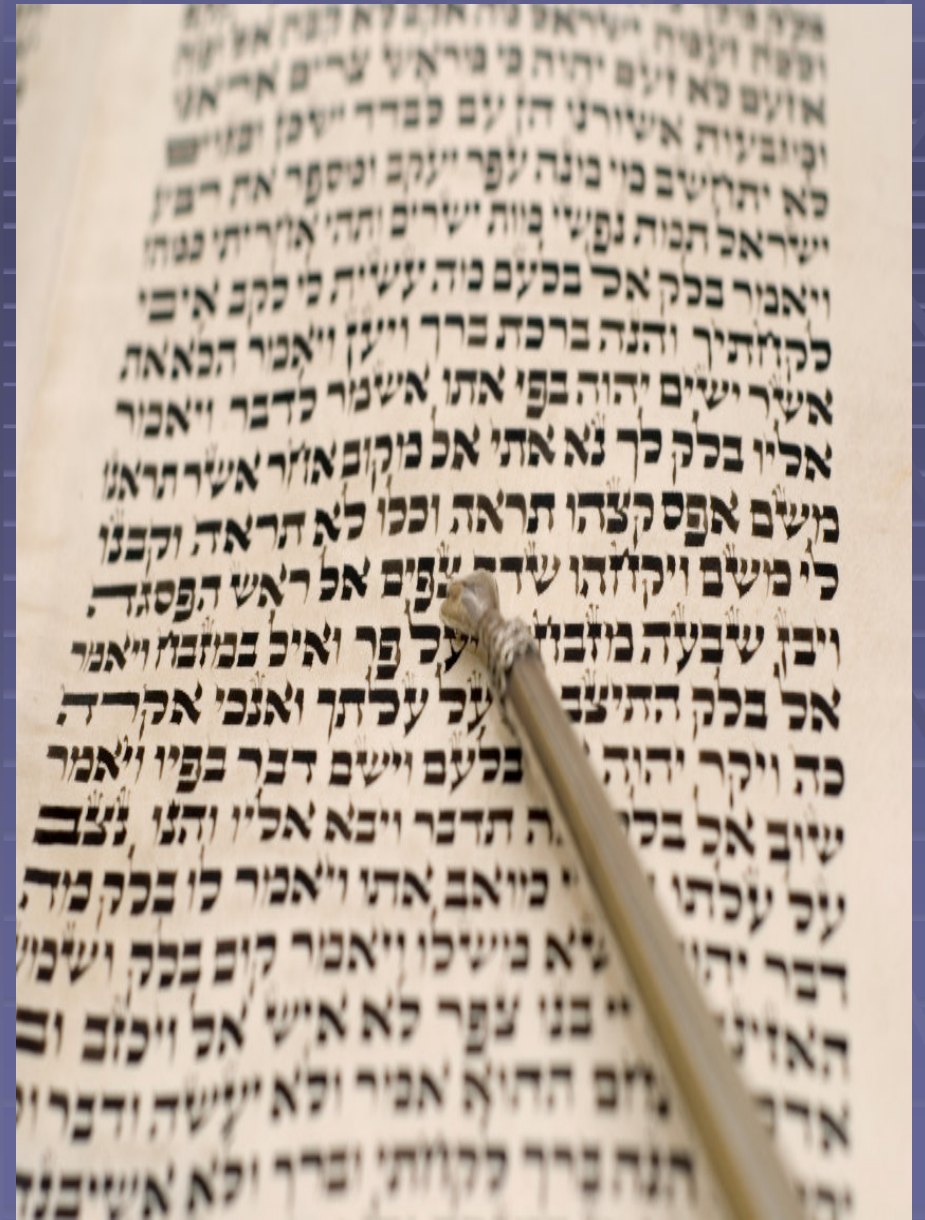 ולכה זעמה ישראל מה אקב לא קבה אל ומה
אזעם לא זעם יהוה כי מראש צרים אראנו
ומגבעות אשורנו הן עם לבדד ישכן ובגוים
לא יתחשב מי מנה עפר יעקב ומספר את רבע
ישראל תמת נפשי מות ישרים ותהי אחריתי כמהו
ויאמר בלק אל בלעם מה עשית לי לקב איבי
לקחתיך והנה ברכת ברך ויען ויאמר הלא את
אשר ישים יהוה בפי אתו אשמר לדבר ויאמר
אליו בלק לך נא אתי אל מקום אחר אשר תראנו
משם אפס קצהו תראה וכלו לא תראה וקבנו
לי משם ויקחהו שדה צפים אל ראש הפסגה
ויבן שבעה מזבחת ויעל פר ואיל במזבח ויאמר
אל בלק התיצב על עלתך ואנכי אקרה
כה ויקר יהוה בלעם וישם דבר בפיו ויאמר
שוב אל בלק תדבר ויבא אליו והנו נצב
על עלתו מואב אתו ויאמר לו בלק מה
דבר משלו ויאמר קום בלק ושמע
בנו צפר לא איש אל ויכזב
ההוא אמר ולא יעשה ודבר
הנה ברך לקחתי וברך ולא אשיבנה